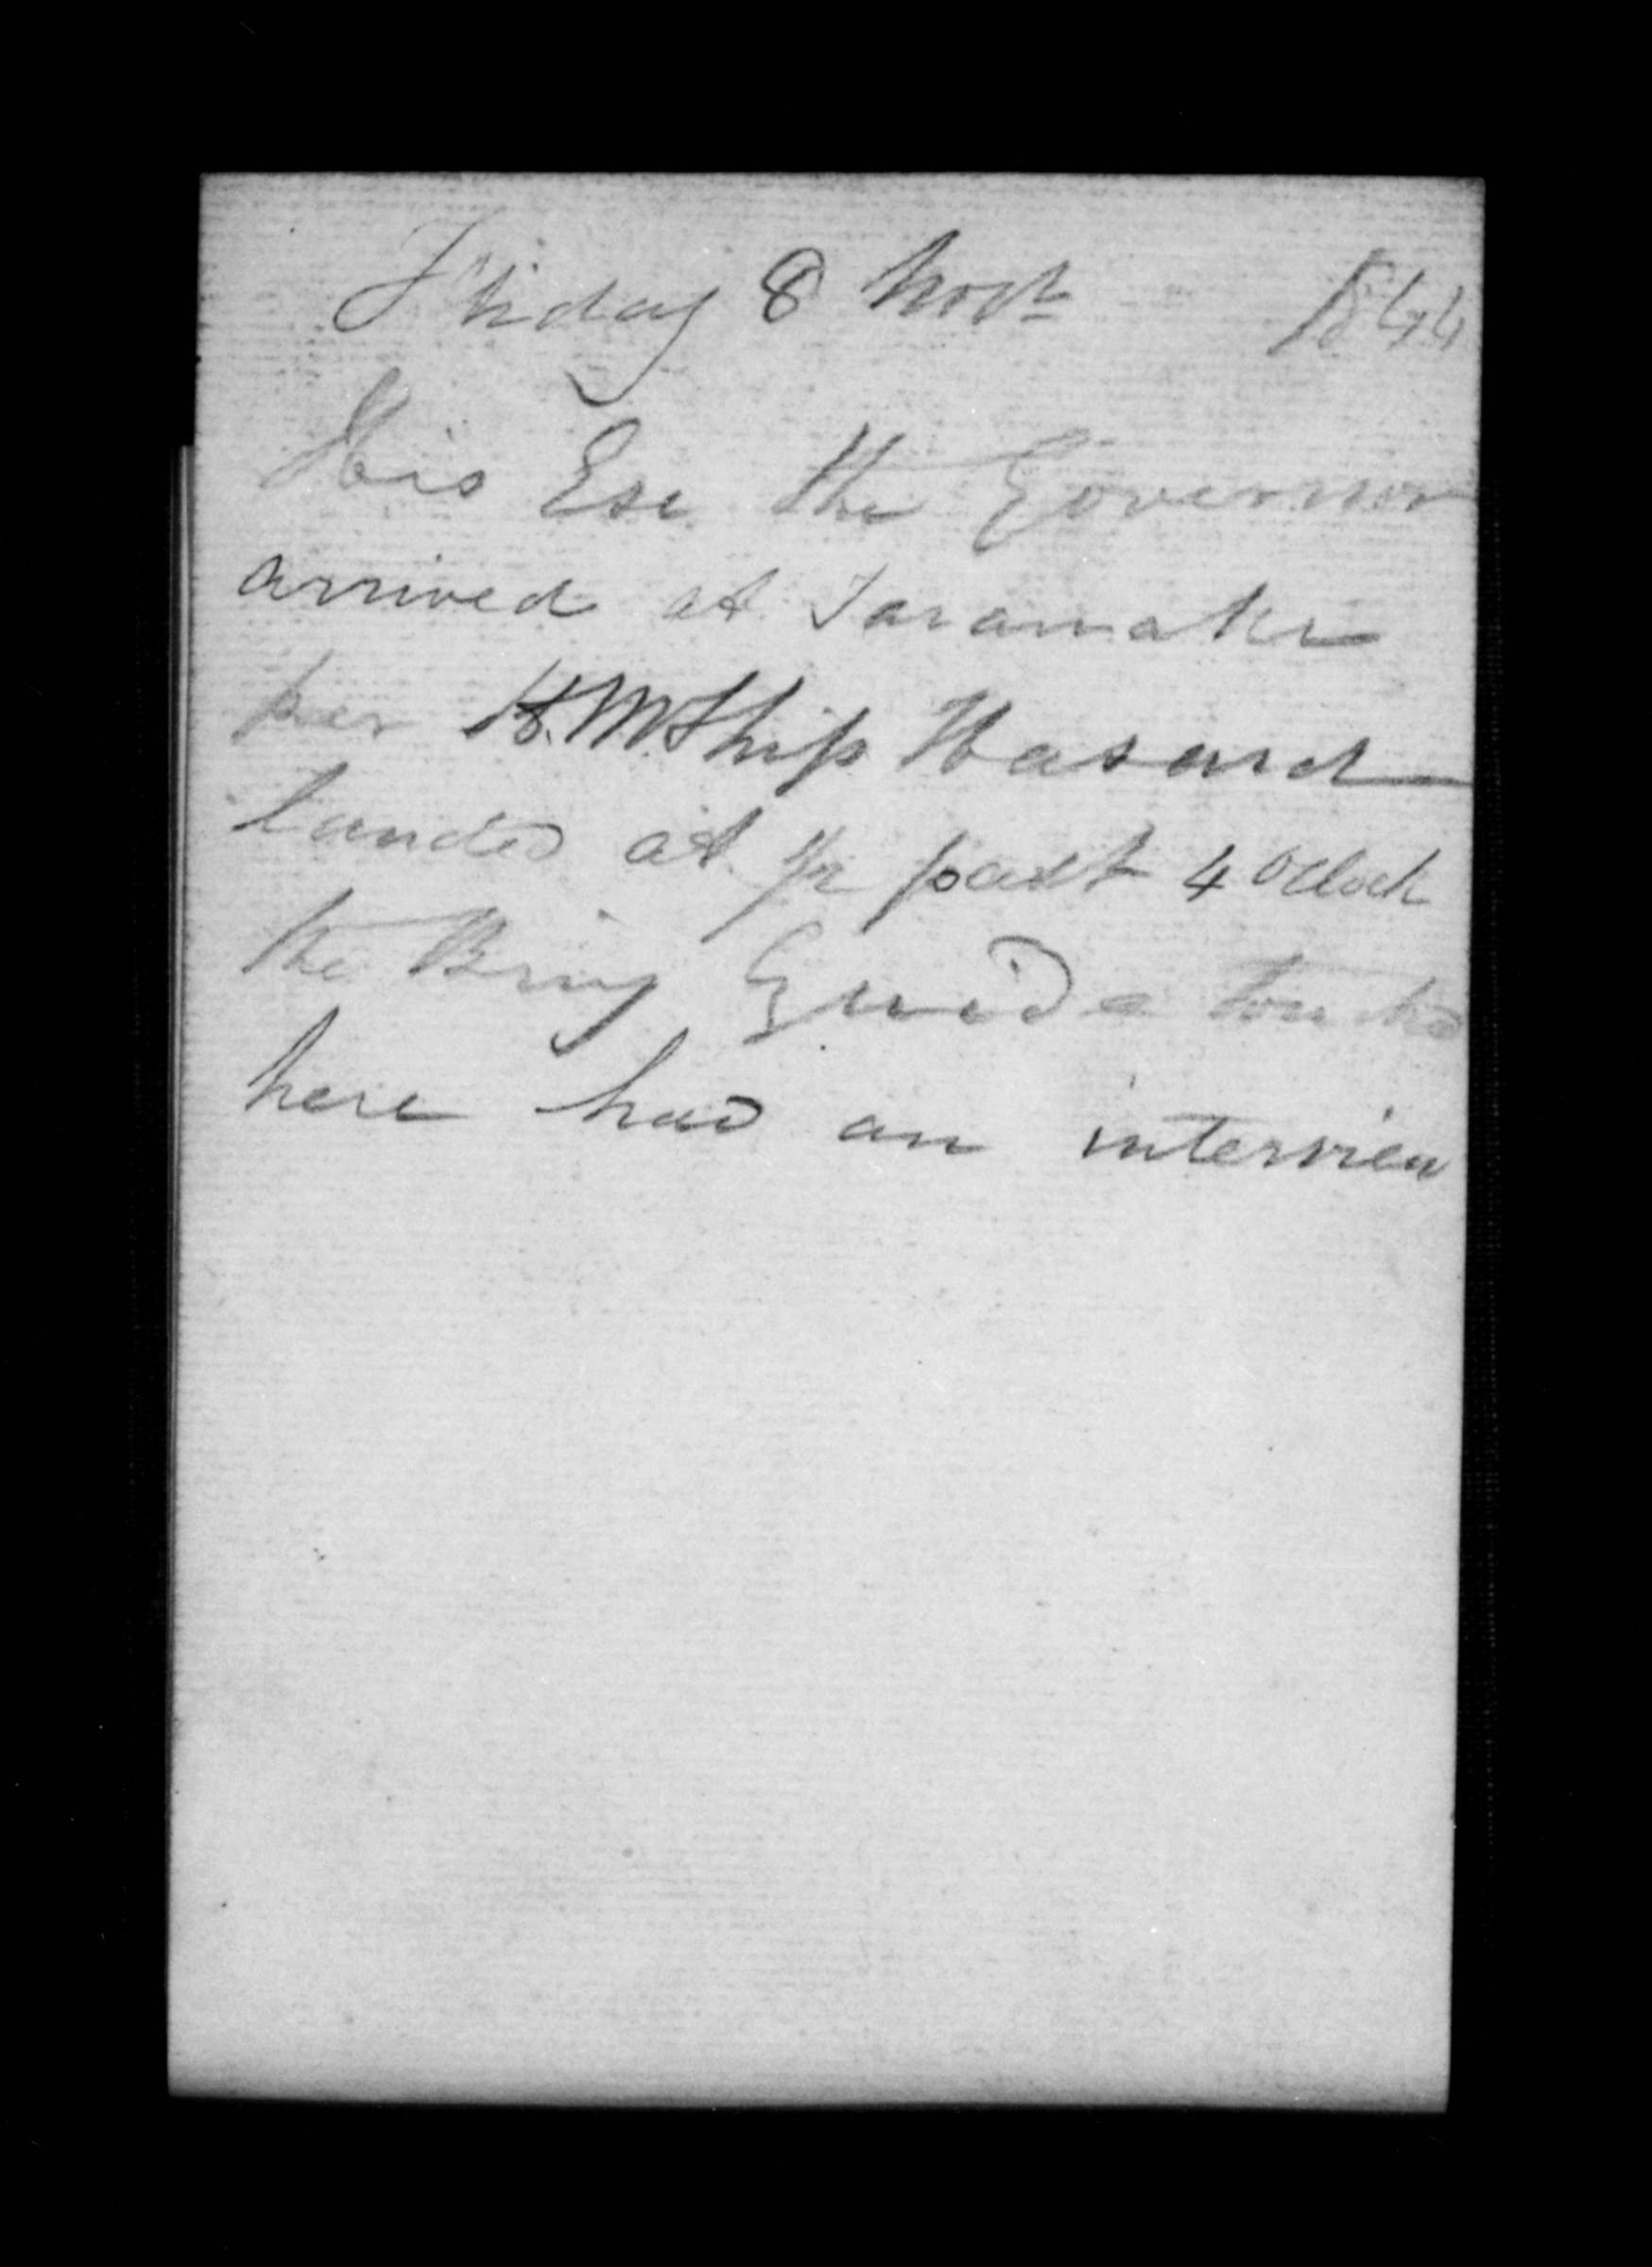 Friday 8 Novr 1844
His Exe the Governor
arrived at Taranaki
per H.M. Ship Hasard
landed at 1/2 past 4 OClock
the Brig Guide touched
here had an interview